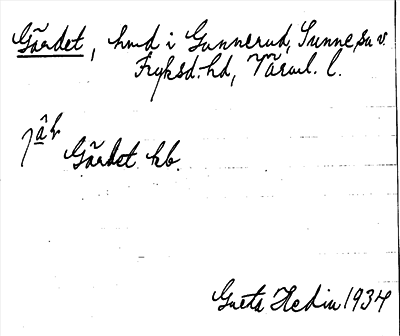 Gärdet, hmd i Gunnerud, Sunne sn v.
Fryksd. hd, Värml. l.
Gärdet kb.
Greta Hedin 1934